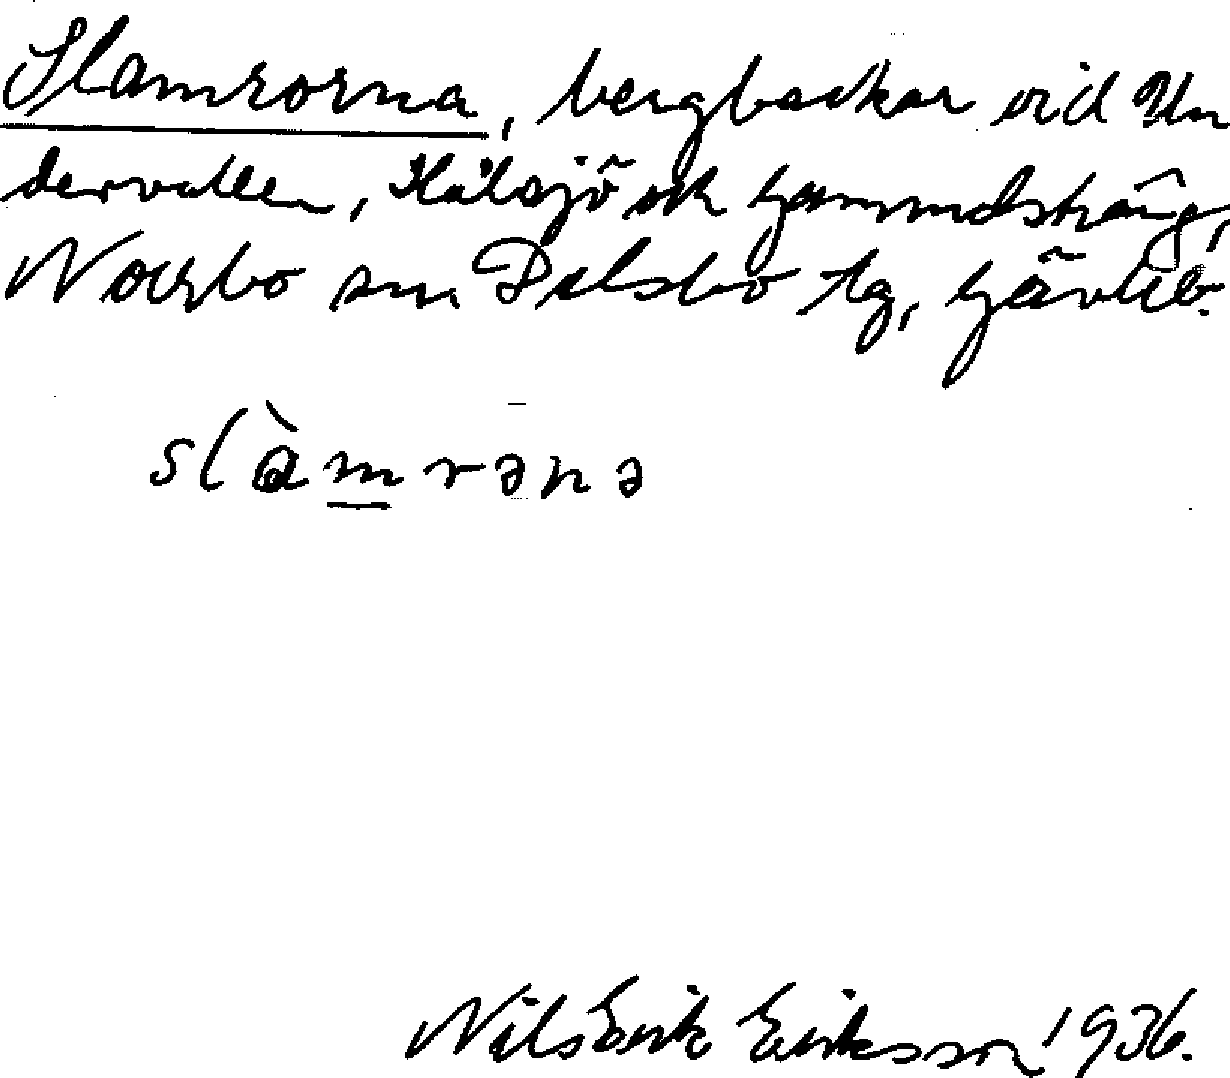 Slamrorna, bergbackar vid Un
dervallen, Källsjö ok Gammelsträng,
Norrbo sn Delsbo tg, Gävleb.
slàmrəna
Nils Erik Eriksson 1936.